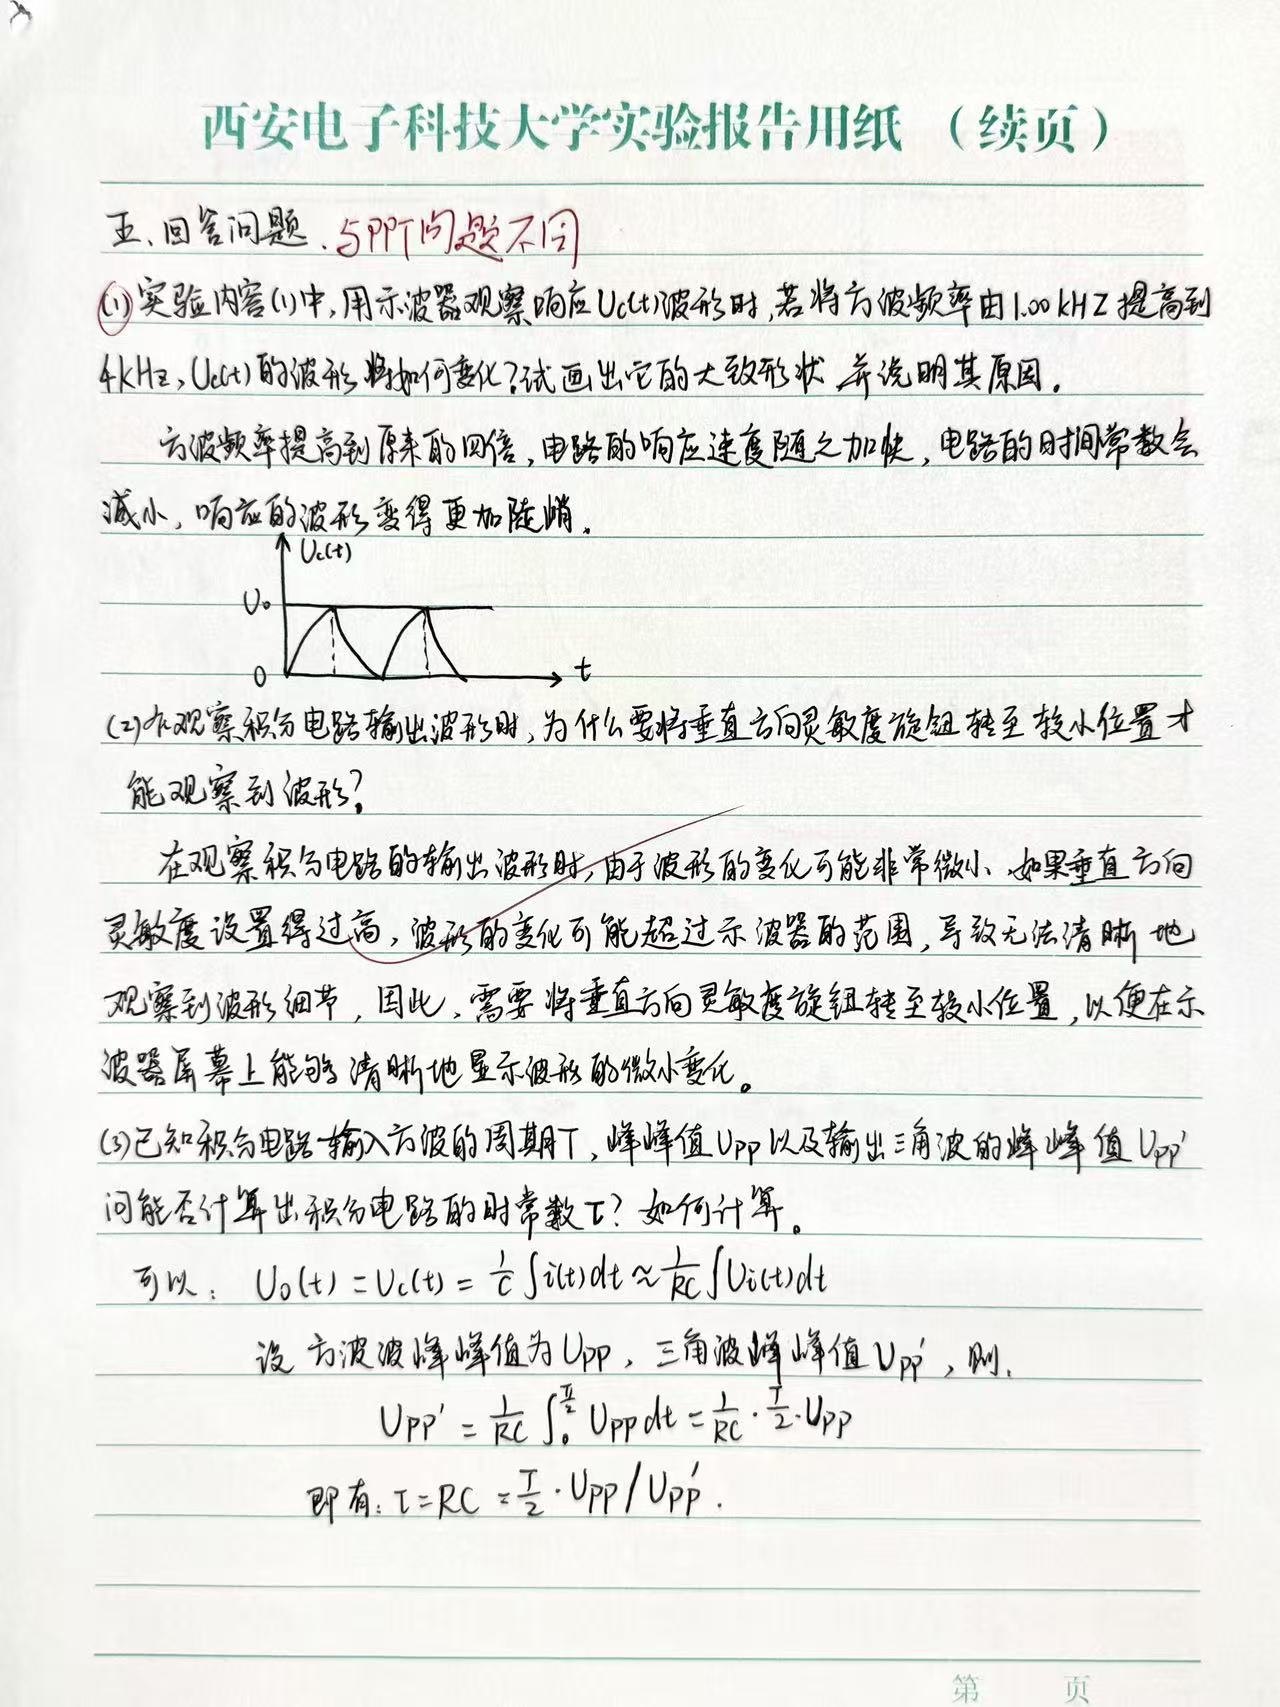 西安电子科技大学实验报告用纸 (续页)
五、回答问题. 与PPT问题不同
(1)实验内容(1)中,用示波器观察响应Uc(t)波形时,若将方波频率由1.00kHZ提高到
4kHz,Uc(t)的波形将如何变化?试画出它的大致形状,并说明其原因。
方波频率提高到原来的四倍,电路的响应速度随之加快,电路的时间常数会
减小,响应的波形变得更加陡峭。
Uc(t)
U₀
0 t
(2)在观察积分电路输出波形时,为什么要将垂直方向灵敏度旋钮转至较小位置才
能观察到波形?
在观察积分电路的输出波形时,由于波形的变化可能非常微小、如果垂直方向
灵敏度设置得过高,波形的变化可能超过示波器的范围,导致无法清晰地
观察到波形细节,因此,需要将垂直方向灵敏度旋钮转至较小位置,以便在示
波器屏幕上能够清晰地显示波形的微小变化。
(3)已知积分电路输入方波的周期T,峰峰值Upp以及输出三角波的峰峰值Upp'
问能否计算出积分电路的时常数τ?如何计算。
可以: U₀(t)=Uc(t)=1/C ∫i(t)dt≈1/RC ∫Ui(t)dt
设方波波峰峰值为Upp,三角波峰峰值Upp',则:
Upp'=1/RC ∫₀^(T/2) Upp dt=1/RC·T/2·Upp
即有:τ=RC=T/2·Upp/Upp'.
第 页